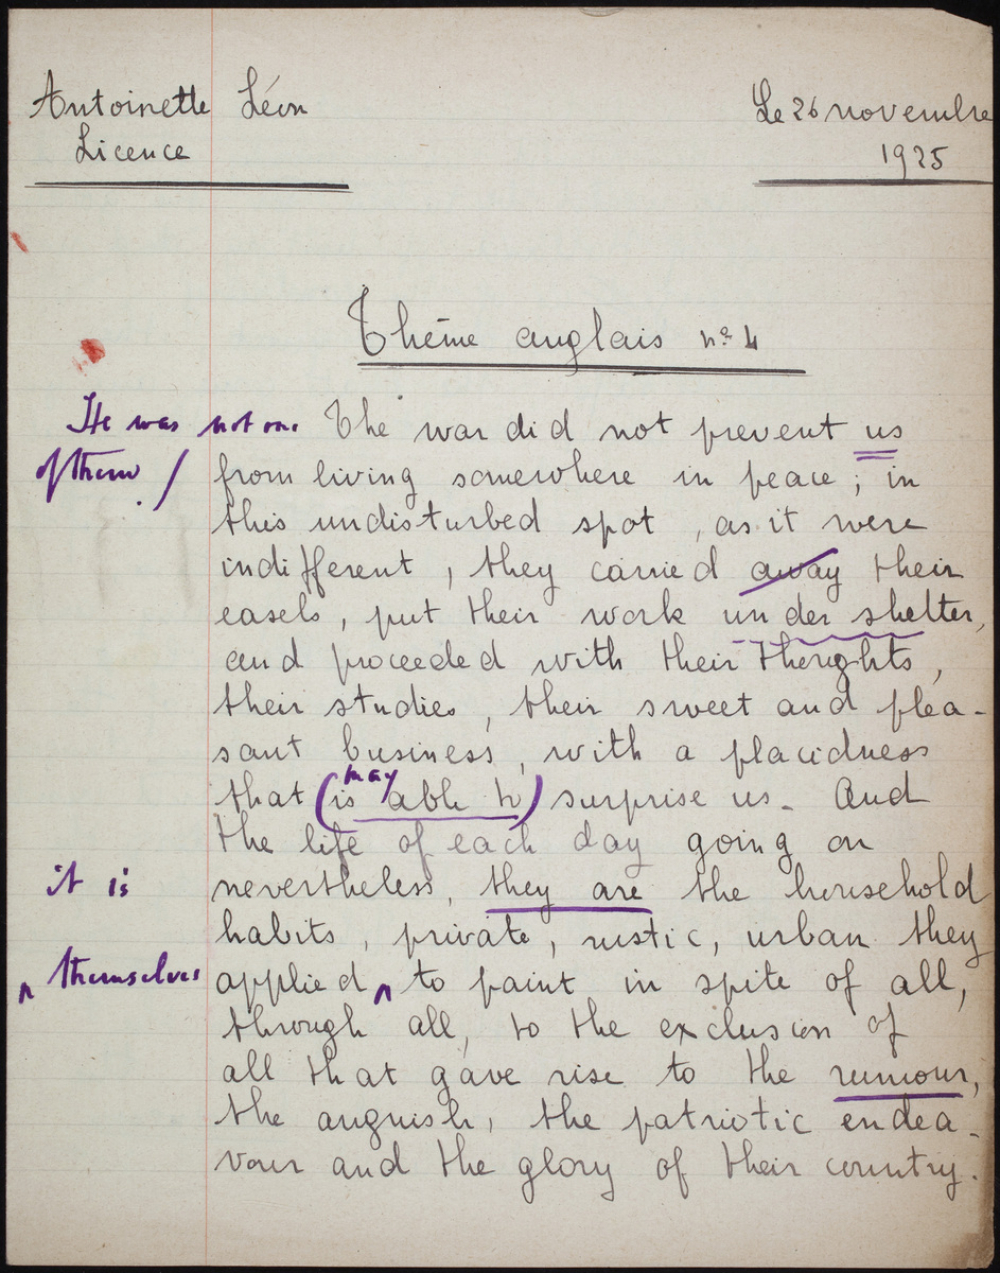 Antoinette Léon
Le 26 novembre
Licence
1925
Thème anglais nº 4
He was not one
of them /
The war did not prevent us
from living somewhere in peace ; in
this undisturbed spot , as it were
indifferent , they carried away their
easels , put their work under shelter,
and proceeded with their thoughts ,
their studies , their sweet and plea-
sant business , with a placidness
may
that (is able to) surprise us . And
the life of each day going on
it is
nevertheless, they are the household
habits , private , rustic , urban they
themselves
applied to paint in spite of all,
through all, to the exclusion of
all that gave rise to the rumour,
the anguish , the patriotic endea-
vour and the glory of their country.